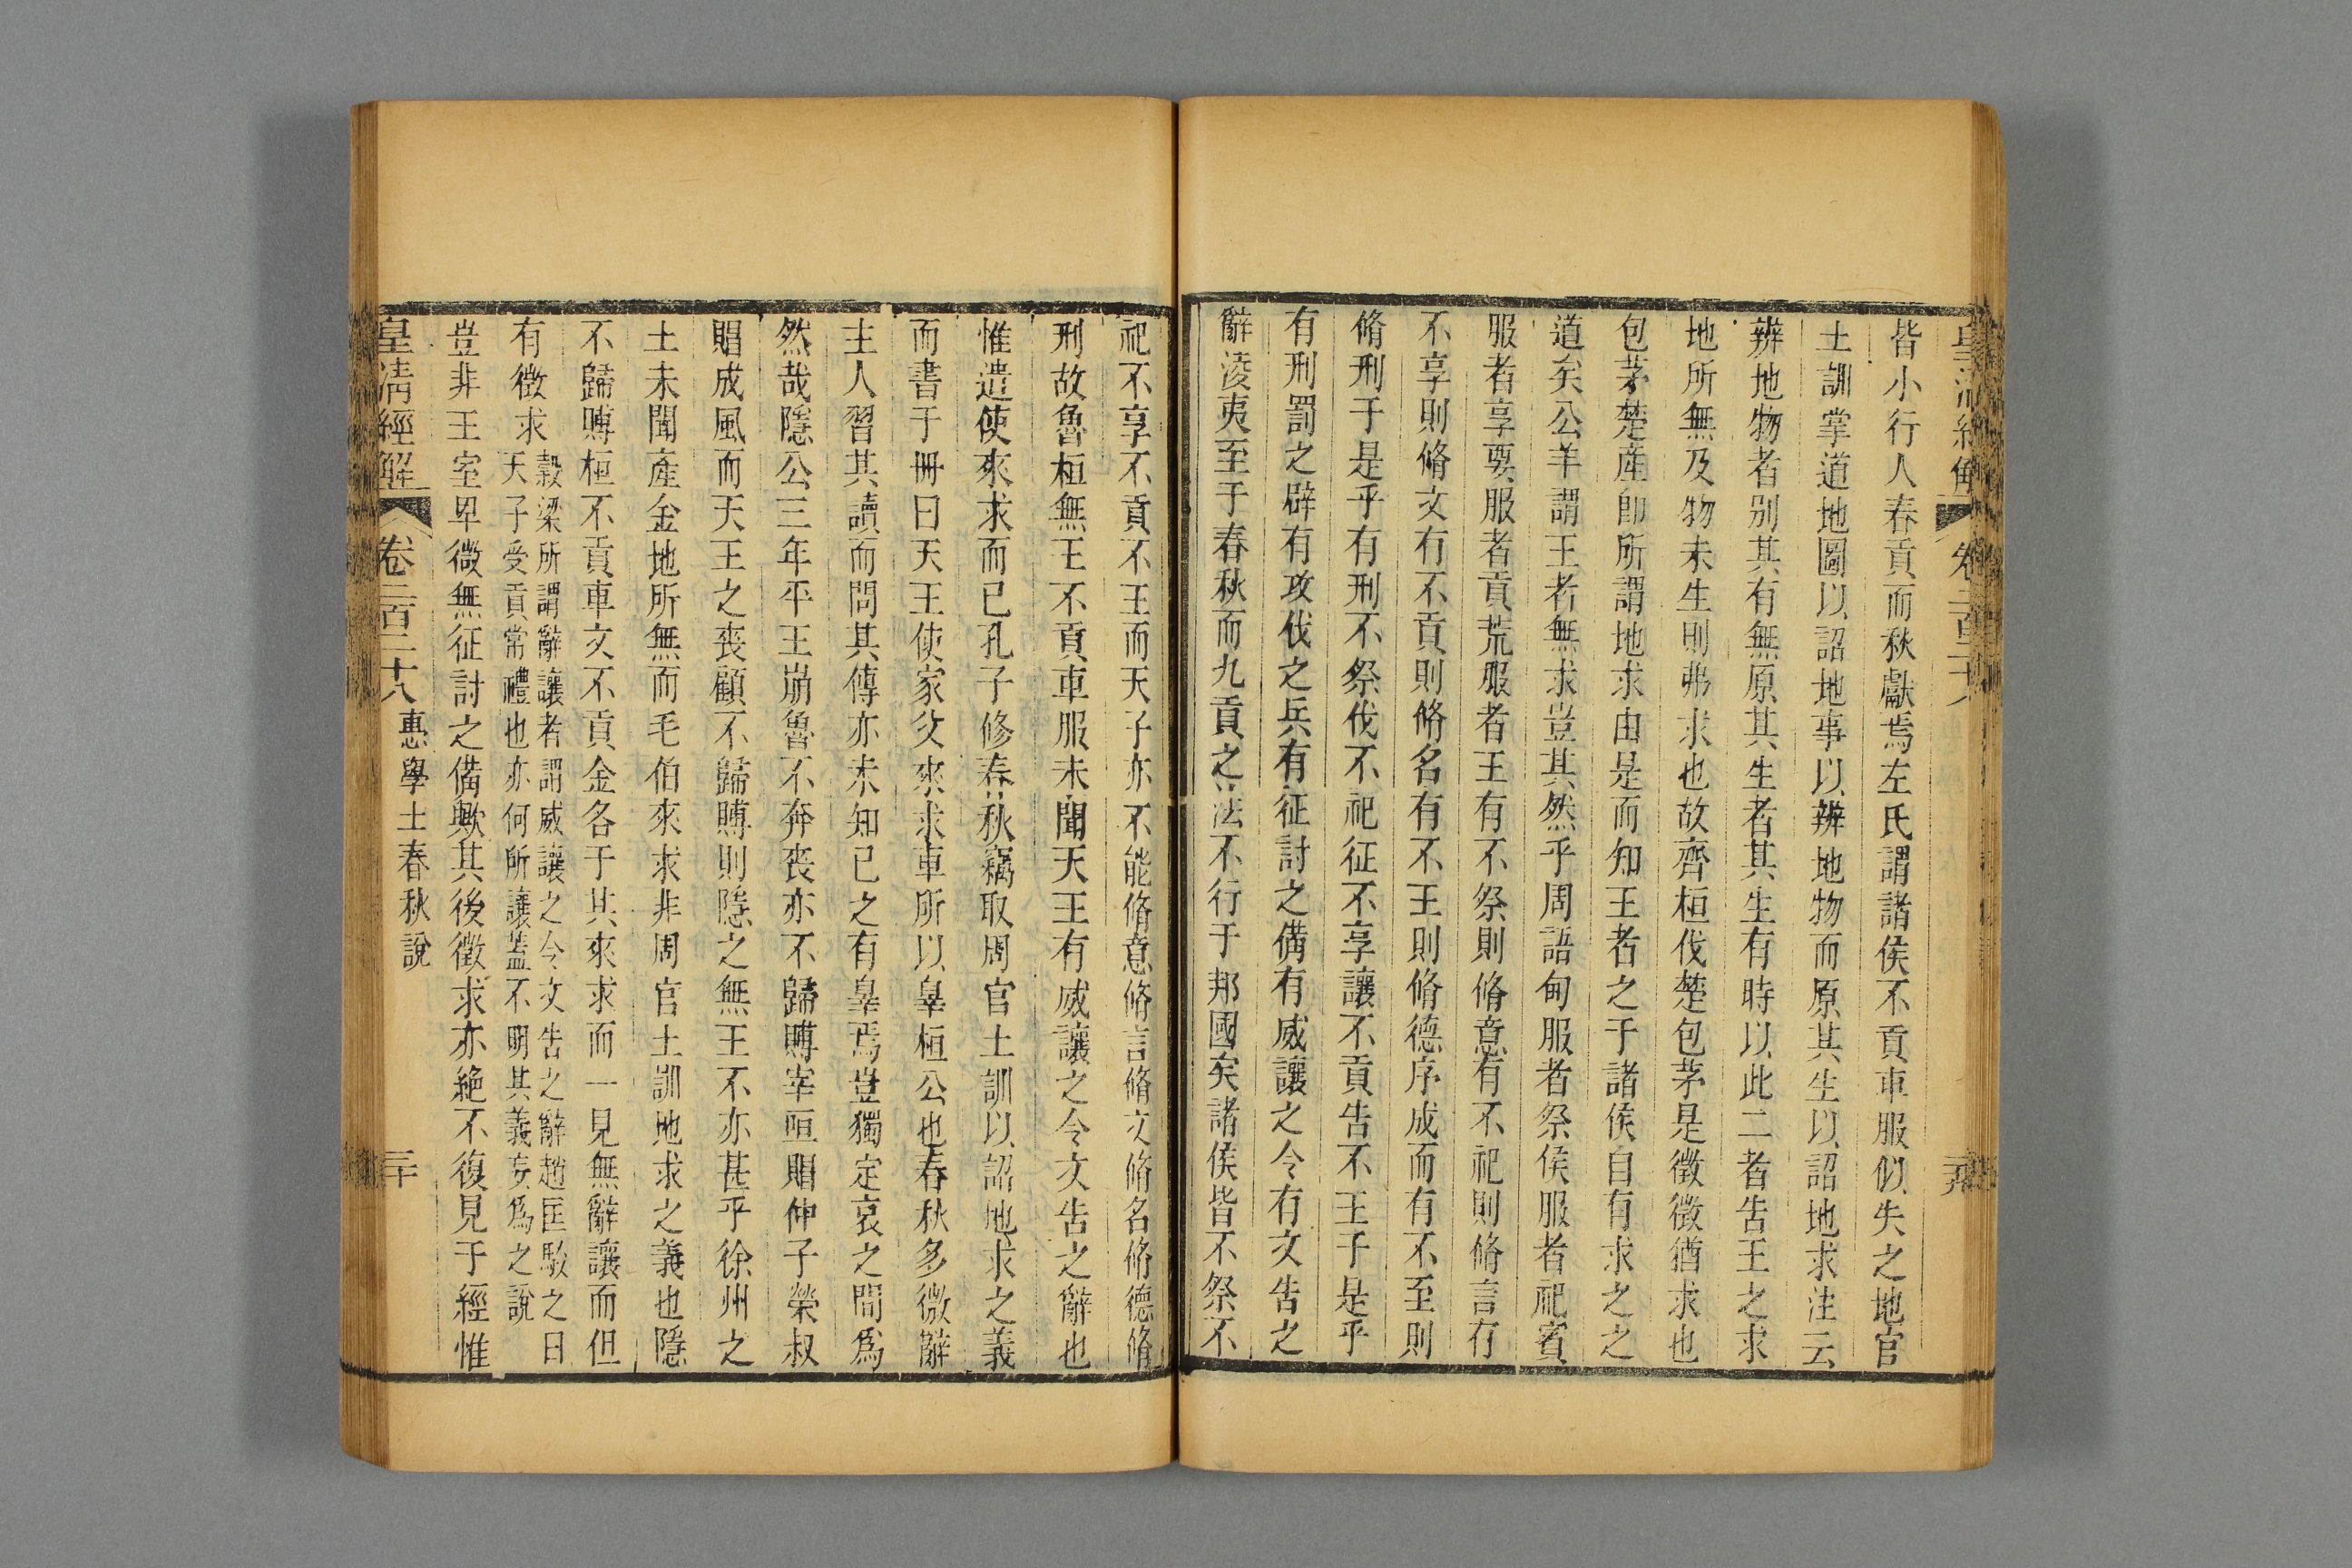 皆小行人春貢而秋獻焉左氏謂諸侯不貢車服似失之地官
土訓掌道地圖以詔地事以辨地物而原其生以詔地求注云
辨地物者别其有無原其生者其生有時以此二者告王之求
地所無及物未生則弗求也故齊桓伐楚包茅是徵徵猶求也
包茅楚産卽所謂地求由是而知王者之于諸侯自有求之之
道矣公羊謂王者無求豈其然乎周語甸服者祭侯服者祀賓
服者享要服者貢荒服者王有不祭則脩意有不祀則脩言有
不享則脩文有不貢則脩名有不王則脩德序成而有不至則
脩刑于是乎有刑不祭伐不祀征不享讓不貢告不王于是乎
有刑罰之辟有攻伐之兵有征討之備有威讓之令有文告之
辭淩夷至于春秋而九貢之法不行于邦國矣諸侯皆不祭不
祀不享不貢不王而天子亦不能脩意脩言脩文脩名脩德脩
刑故魯桓無王不貢車服未聞天王有威讓之令文告之辭也
惟遣使來求而已孔子修春秋竊取周官土訓以詔地求之義
而書于冊曰天王使家父來求車所以辠桓公也春秋多微辭
主人習其讀而問其傳亦未知已之有辠焉豈獨定哀之間爲
然哉隱公三年平王崩魯不奔喪亦不歸賻宰咺賵仲子榮叔
賵成風而天王之喪顧不歸賻則隱之無王不亦甚乎徐州之
土未聞産金地所無而毛伯來求非周官土訓地求之義也隱
不歸賻桓不貢車文不貢金各于其來求而一見無辭讓而但
有徵求穀梁所謂辭讓者謂威讓之令文告之辭趙匡駁之曰
天子受貢常禮也亦何所讓蓋不明其義妄爲之說
豈非王室卑微無征討之備歟其後徵求亦絶不復見于經惟
皇清經解 卷二百二十八 惠學士春秋說 三十